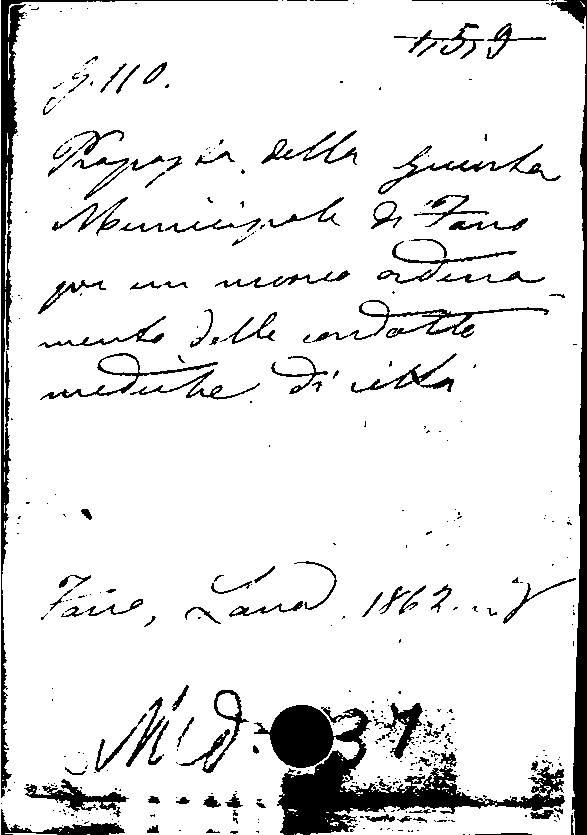 1,5,9
G.110.
Proposta della Giunta
Municipale di Fano
per un nuovo ordina-
mento delle condotte
mediche di città
Fano, Lana, 1862. in 8
Med: 37